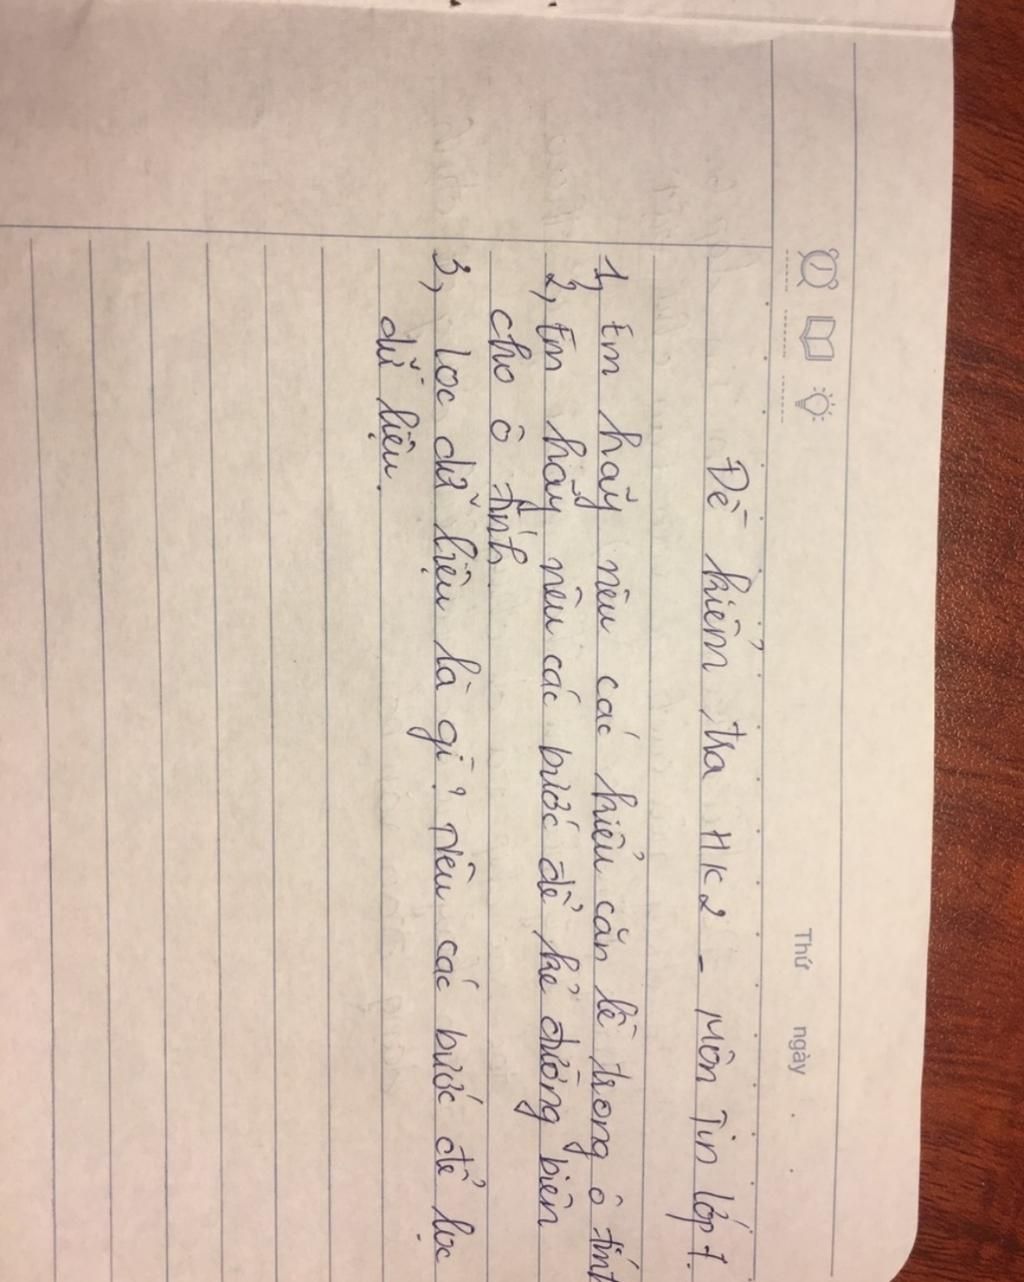 Thứ ngày . .
Đề kiểm tra HK2 - Môn Tin lớp 7.
1, Em hãy nêu các kiểu căn lề trong ô tính
2, Em hãy nêu các bước để kẻ đường biên
cho ô tính.
3, Lọc dữ liệu là gì? Nêu các bước để lọc
dữ liệu.